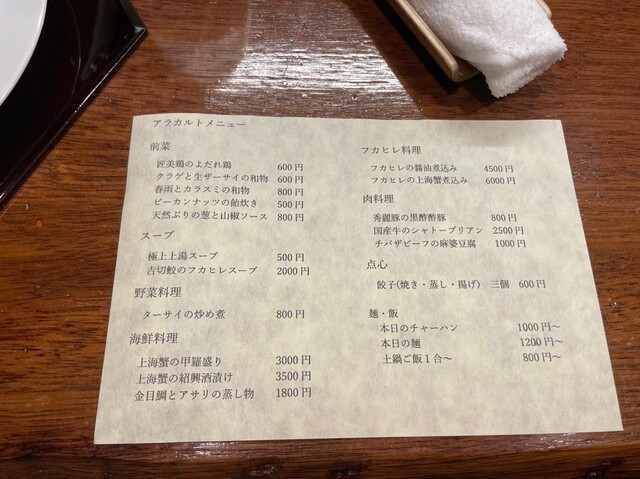 アラカルトメニュー
前菜
匠美鶏のよだれ鶏 600円
クラゲと生ザーサイの和物 600円
春雨とカラスミの和物 800円
ピーカンナッツの飴炊き 500円
天然ぶりの葱と山椒ソース 800円
スープ
極上上湯スープ 500円
吉切鮫のフカヒレスープ 2000円
野菜料理
ターサイの炒め煮 800円
海鮮料理
上海蟹の甲羅盛り 3000円
上海蟹の紹興酒漬け 3500円
金目鯛とアサリの蒸し物 1800円
フカヒレ料理
フカヒレの醤油煮込み 4500円
フカヒレの上海蟹煮込み 6000円
肉料理
秀麗豚の黒酢酢豚 800円
国産牛のシャトーブリアン 2500円
チバザビーフの麻婆豆腐 1000円
点心
餃子(焼き・蒸し・揚げ) 三個 600円
麺・飯
本日のチャーハン 1000円~
本日の麺 1200円~
土鍋ご飯1合~ 800円~